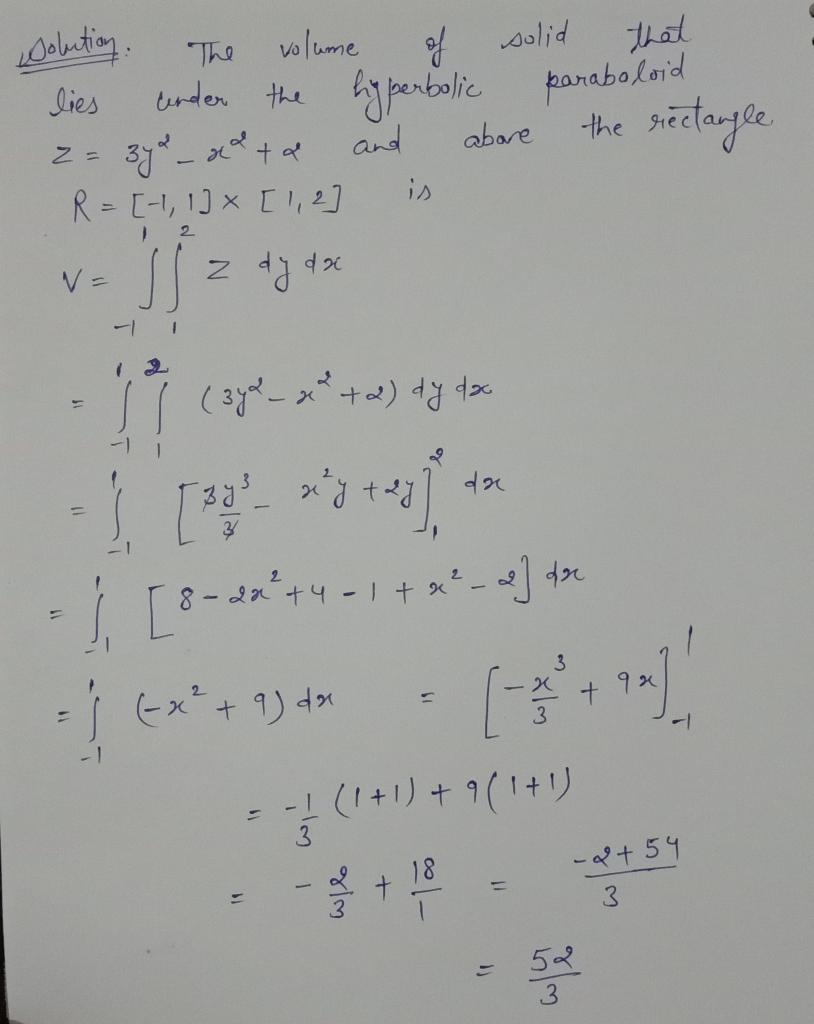 Solution: The volume of solid that
lies under the hyperbolic paraboloid
z = 3y² - x² + 2 and above the rectangle
R = [-1, 1] × [1, 2] is
V = ∫₋₁¹ ∫₁² z dy dx
= ∫₋₁¹ ∫₁² (3y² - x² + 2) dy dx
= ∫₋₁¹ [3y³/3 - x²y + 2y]₁² dx
= ∫₋₁¹ [8 - 2x² + 4 - 1 + x² - 2] dx
= ∫₋₁¹ (-x² + 9) dx = [-x³/3 + 9x]₋₁¹
= -1/3 (1+1) + 9(1+1)
= -2/3 + 18/1 = (-2+54)/3
= 52/3